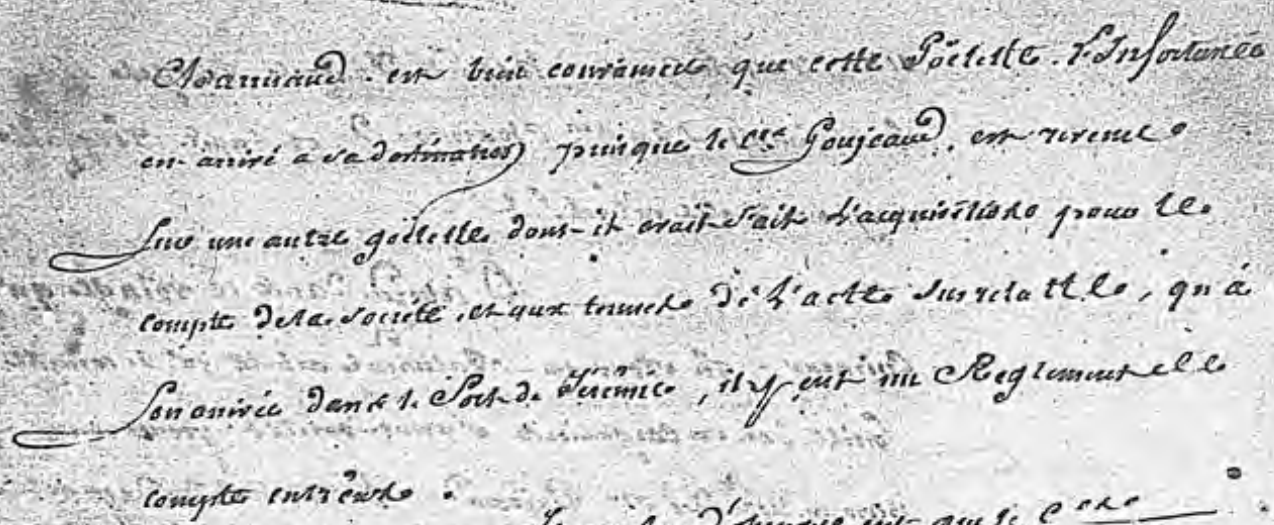 est bien convaincu que cette Goëlette L'Infortunée
est arrivé a sa destination puisque le Cen Goujeaud, est revenu
sur une autre goëlette dont il avait fait L'acquisition pour le
compte de la société, et aux termes de L'acte susrelatté, qu'à
son arrivée dans le Port de Jérémie, il y eut un Reglement de
compte entr'eux.
que le